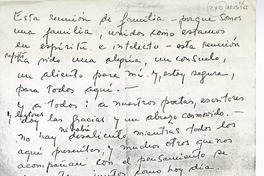 Esta reunión de familia - porque somos
una familia, unidos como estamos
en espíritu e intelecto - esta reunión
repito
ha sido una alegría, un consuelo,
un aliento para mí y, estoy segura,
para todos aquí. -
y a todos: a nuestros poetas, escritores
y lectores
doy las gracias y un abrazo conmovido. -
no hay desaliento mientras todos los
aquí presentes, y muchos otros que nos
acompañan con el pensamiento se
juntos como hoy día